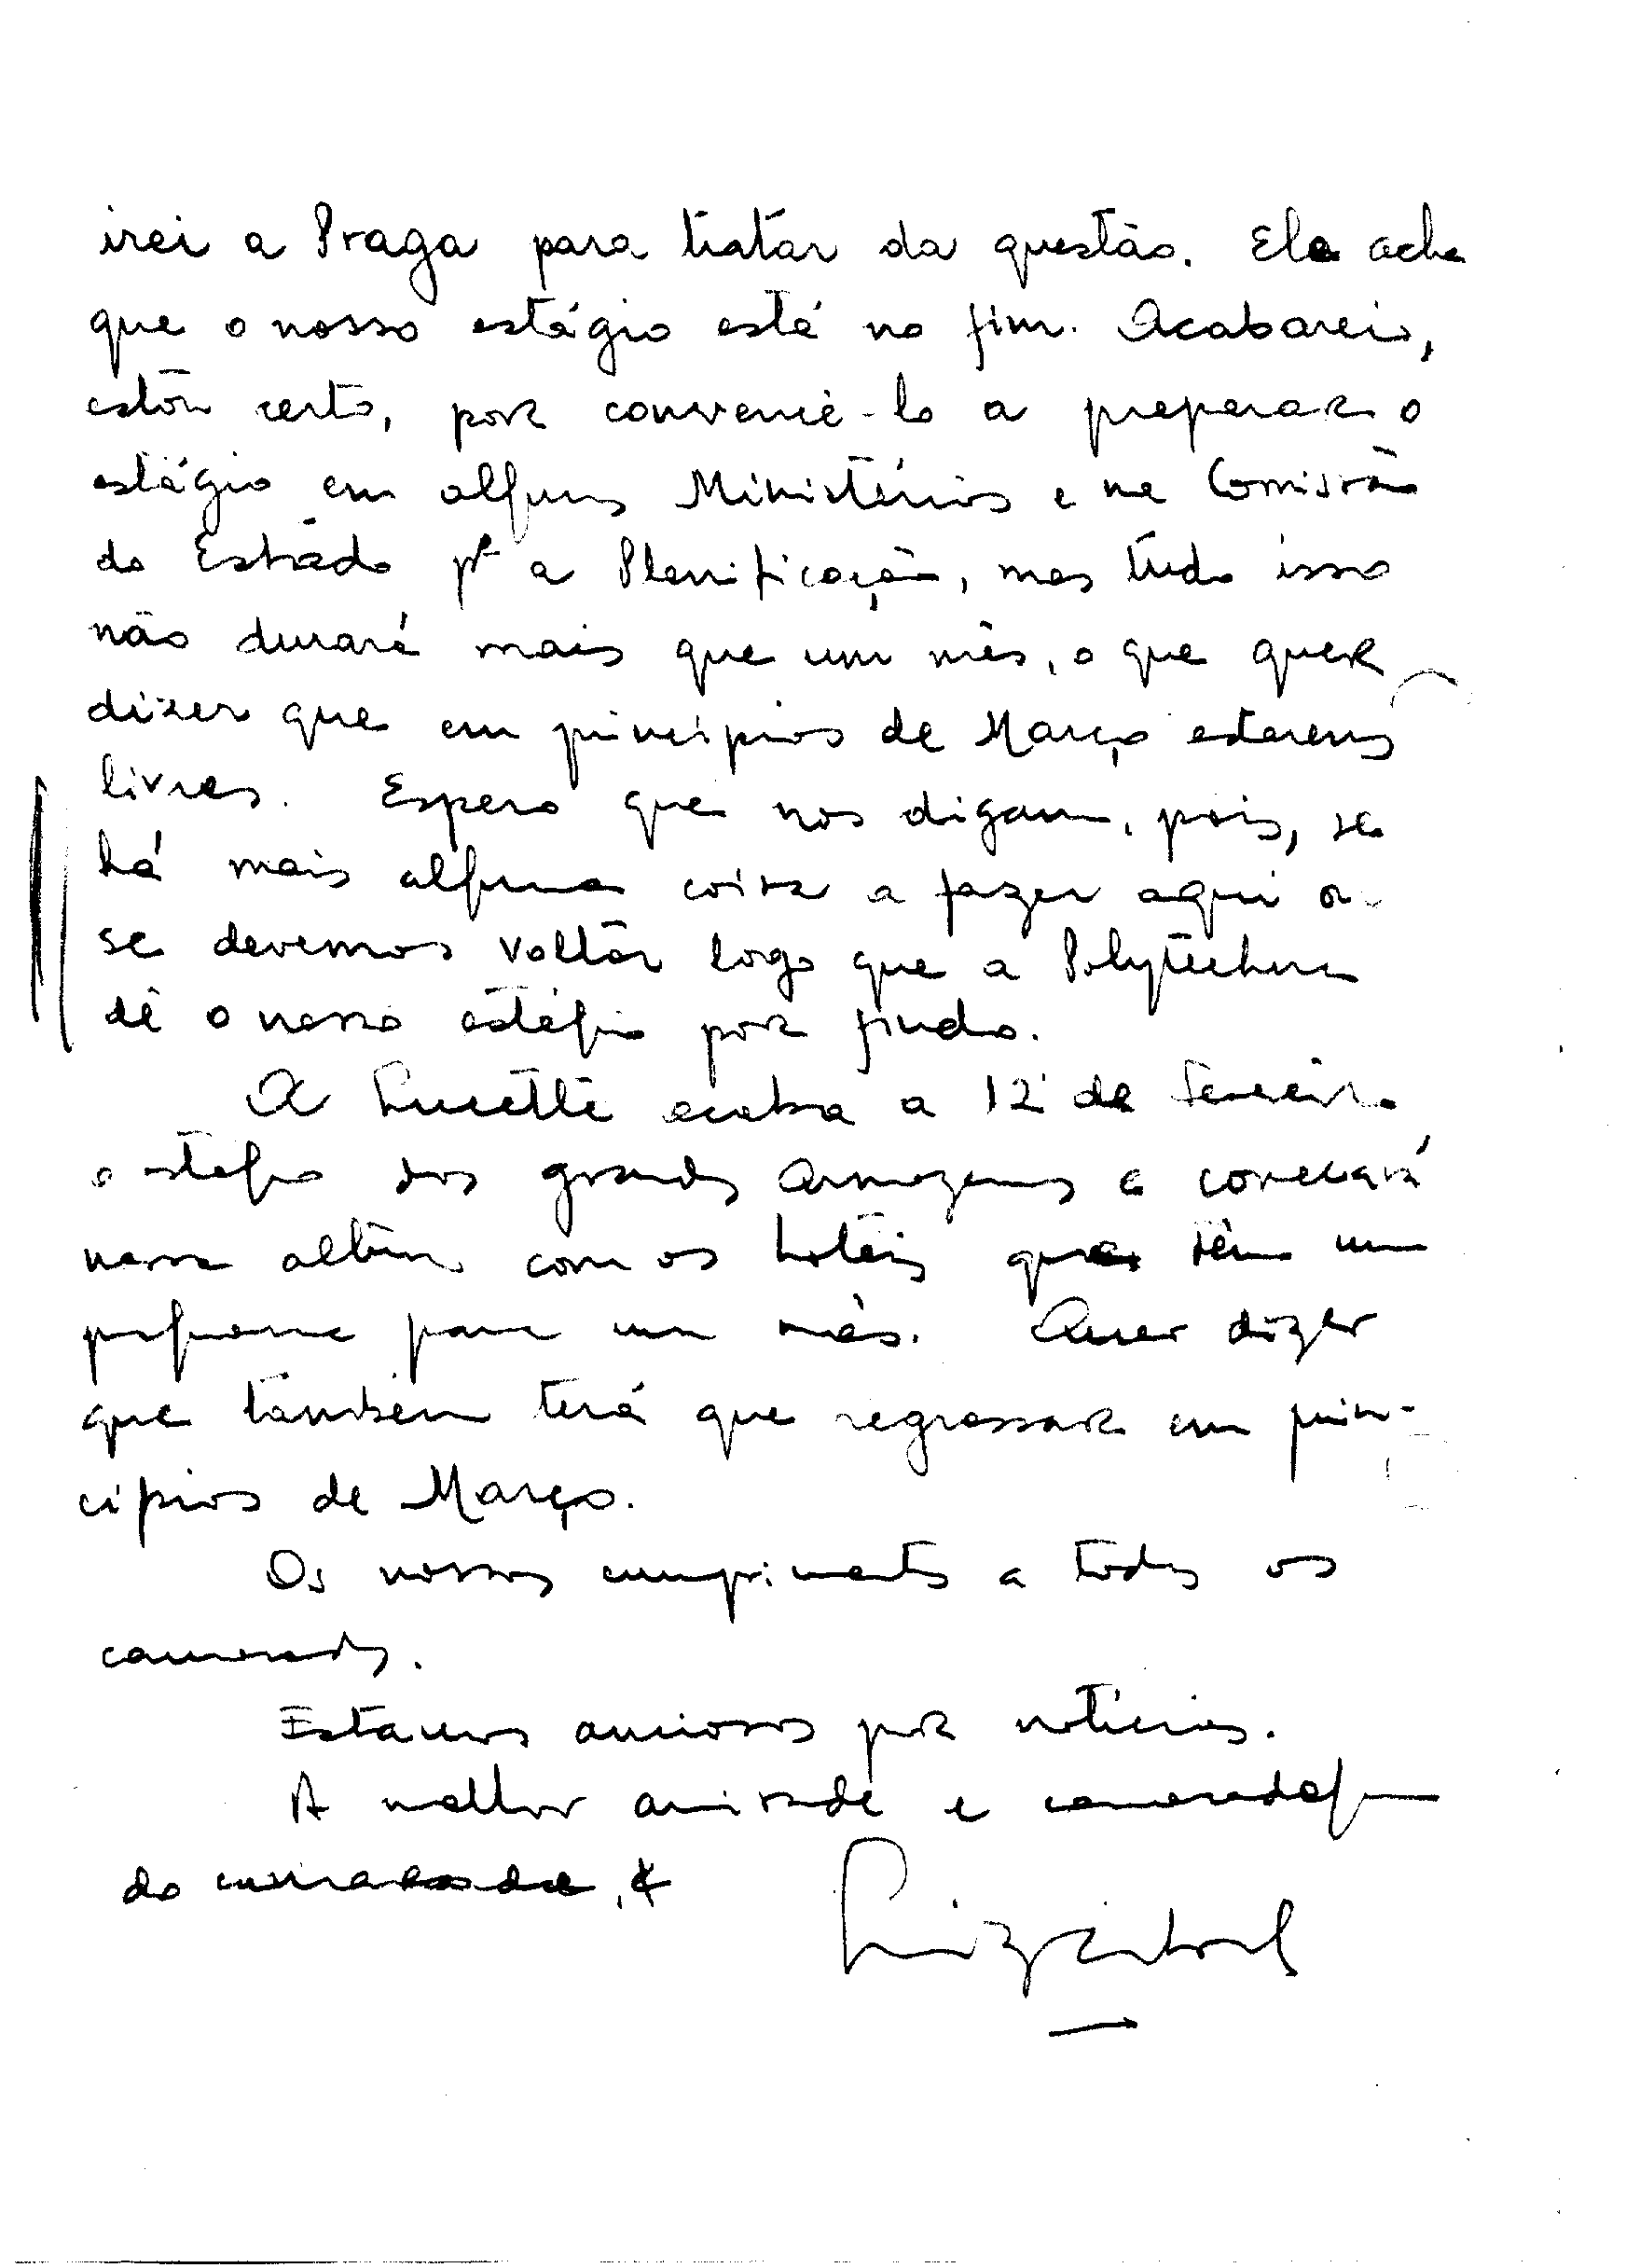 irei a Praga para tratar da questão. Ele acha
que o nosso estágio está no fim. Acabarei,
estou certo, por convencê-lo a preparar o
estágio em alguns Ministérios e na Comissão
do Estado pª a Planificação, mas tudo isso
não durará mais que um mês, o que quer
dizer que em princípios de Março estaremos
livres. Espero que nos digam, pois, se
há mais alguma coisa a fazer aqui ou
se devemos voltar logo que a Polytechna
dê o nosso estágio por findo.
A Lucette acaba a 12 de Fevereiro
o estágio dos grandes armazens e começará
nessa altura com os hotéis que têm um
programa para um mês. Quer dizer
que também terá que regressar em prin-
cípios de Março.
Os nossos cumprimentos a todos os
camaradas.
Estamos ansiosos por notícias.
A melhor amizade e camaradagem
do camarada,